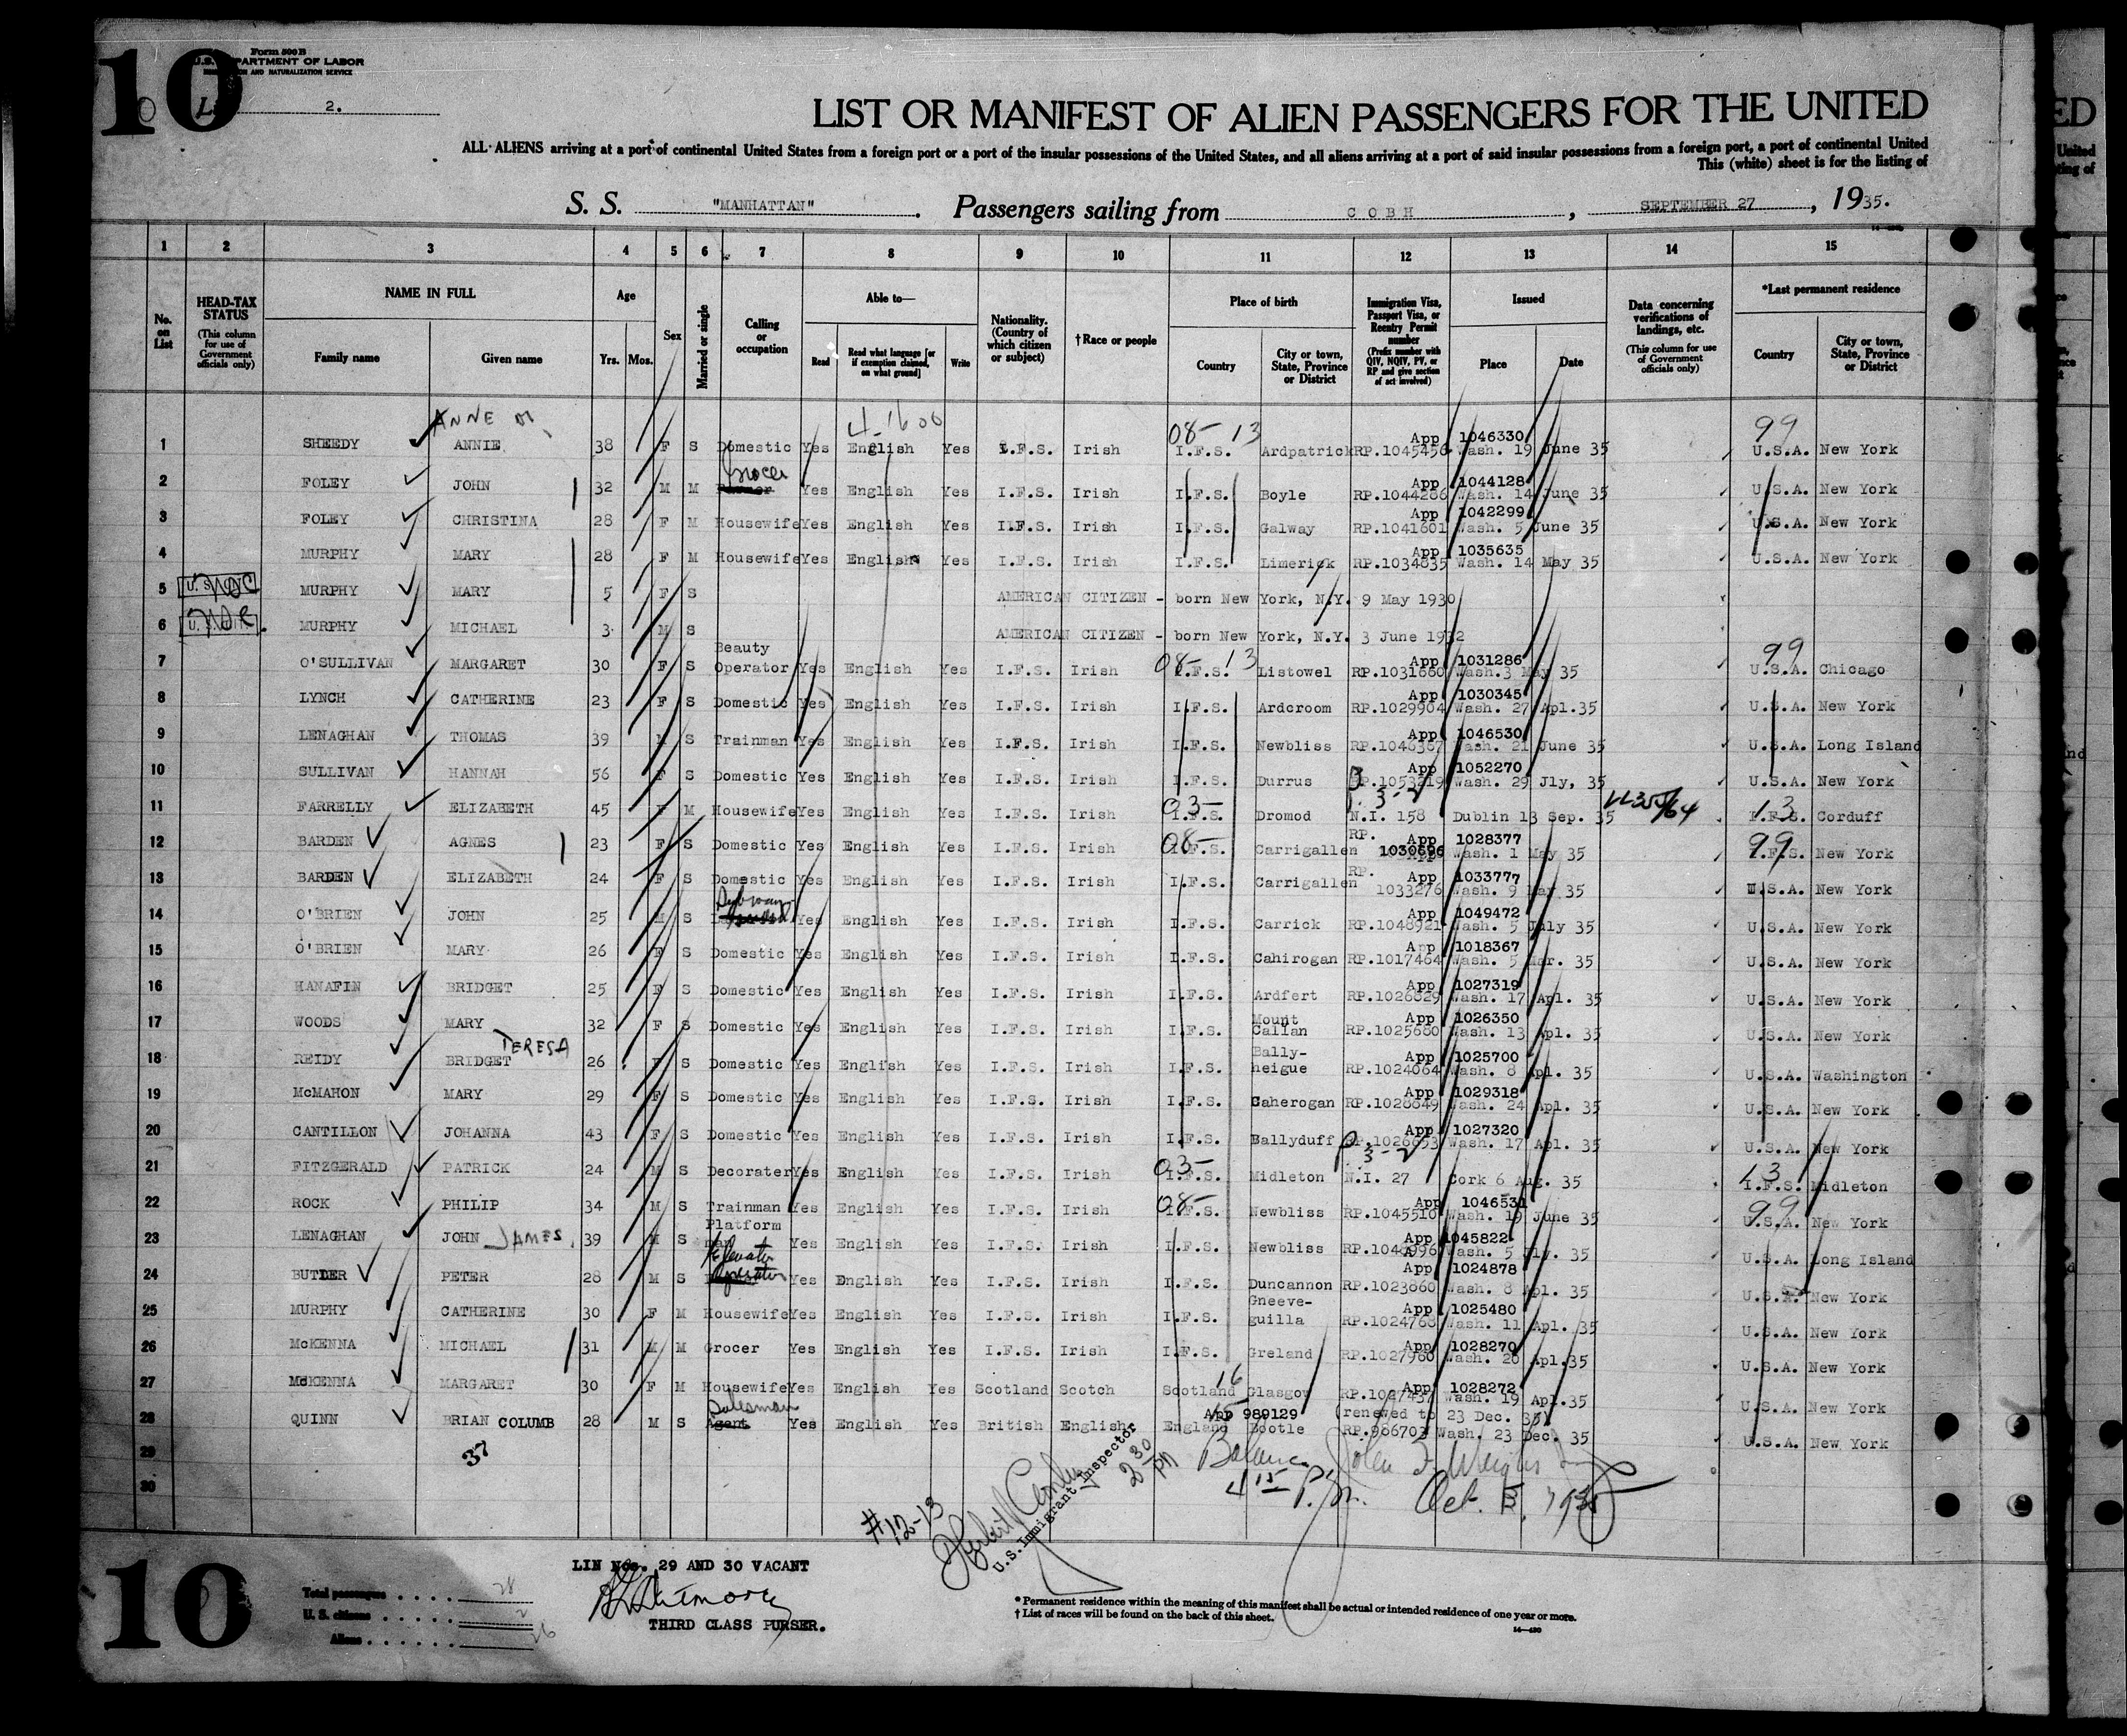 10
Form 500 B
U.S. DEPARTMENT OF LABOR
IMMIGRATION AND NATURALIZATION SERVICE
2.
LIST OR MANIFEST OF ALIEN PASSENGERS FOR THE UNITED
ALL ALIENS arriving at a port of continental United States from a foreign port or a port of the insular possessions of the United States, and all aliens arriving at a port of said insular possessions from a foreign port, a port of continental United
This (white) sheet is for the listing of
S. S. "MANHATTAN". Passengers sailing from COBH, SEPTEMBER 27, 1935.
1 2 3 4 5 6 7 8 9 10 11 12 13 14 15
No. on List
HEAD-TAX STATUS (This column for use of Government officials only)
NAME IN FULL Family name Given name
Age Yrs. Mos.
Sex
Married or single
Calling or occupation
Able to— Read Read what language [or if exemption claimed, on what ground] Write
Nationality. (Country of which citizen or subject)
†Race or people
Place of birth Country City or town, State, Province or District
Immigration Visa, Passport Visa, or Reentry Permit number (Prefix number with QIV, NQIV, PV, or RP and give section of act involved)
Issued Place Date
Data concerning verifications of landings, etc. (This column for use of Government officials only)
*Last permanent residence Country City or town, State, Province or District
ANNE M 4-1600 08-13 99
1 SHEEDY ANNIE 38 F S Domestic Yes English Yes I.F.S. Irish I.F.S. Ardpatrick RP.1045456 App 1046330 Wash. 19 June 35 U.S.A. New York
Grocer
2 FOLEY JOHN 32 M M Yes English Yes I.F.S. Irish I.F.S. Boyle RP.1044286 App 1044128 Wash. 14 June 35 U.S.A. New York
3 FOLEY CHRISTINA 28 F M Housewife Yes English Yes I.F.S. Irish I.F.S. Galway RP.1041601 App 1042299 Wash. 5 June 35 U.S.A. New York
4 MURPHY MARY 28 F M Housewife Yes English Yes I.F.S. Irish I.F.S. Limerick RP.1034835 App 1035635 Wash. 14 May 35 U.S.A. New York
5 MURPHY MARY 5 F S AMERICAN CITIZEN - born New York, N.Y. 9 May 1930
6 MURPHY MICHAEL 3 M S AMERICAN CITIZEN - born New York, N.Y. 3 June 1932
08-13 99
7 O'SULLIVAN MARGARET 30 F S Beauty Operator Yes English Yes I.F.S. Irish I.F.S. Listowel RP.1031660 App 1031286 Wash. 3 May 35 U.S.A. Chicago
8 LYNCH CATHERINE 23 F S Domestic Yes English Yes I.F.S. Irish I.F.S. Ardcroom RP.1029904 App 1030345 Wash. 27 Apl.35 U.S.A. New York
9 LENAGHAN THOMAS 39 M S Trainman Yes English Yes I.F.S. Irish I.F.S. Newbliss RP.1046367 App 1046530 Wash. 21 June 35 U.S.A. Long Island
10 SULLIVAN HANNAH 56 F S Domestic Yes English Yes I.F.S. Irish I.F.S. Durrus RP.1053219 App 1052270 Wash. 29 Jly, 35 U.S.A. New York
03- 3-2 13
11 FARRELLY ELIZABETH 45 F M Housewife Yes English Yes I.F.S. Irish I.F.S. Dromod N.I. 158 Dublin 13 Sep. 35 I.F.S. Corduff
08- 99
12 BARDEN AGNES 23 F S Domestic Yes English Yes I.F.S. Irish I.F.S. Carrigallen RP. 1030696 App 1028377 Wash. 1 May 35 I.F.S. New York
13 BARDEN ELIZABETH 24 F S Domestic Yes English Yes I.F.S. Irish I.F.S. Carrigallen RP. 1033276 App 1033777 Wash. 9 May 35 U.S.A. New York
Subway
14 O'BRIEN JOHN 25 M S Yes English Yes I.F.S. Irish I.F.S. Carrick RP.1048921 App 1049472 Wash. 5 July 35 U.S.A. New York
15 O'BRIEN MARY 26 F S Domestic Yes English Yes I.F.S. Irish I.F.S. Cahirogan RP.1017464 App 1018367 Wash. 5 Mar. 35 U.S.A. New York
16 HANAFIN BRIDGET 25 F S Domestic Yes English Yes I.F.S. Irish I.F.S. Ardfert RP.1026829 App 1027319 Wash. 17 Apl. 35 U.S.A. New York
17 WOODS MARY 32 F S Domestic Yes English Yes I.F.S. Irish I.F.S. Mount Callan RP.1025680 App 1026350 Wash. 13 Apl. 35 U.S.A. New York
TERESA
18 REIDY BRIDGET 26 F S Domestic Yes English Yes I.F.S. Irish I.F.S. Bally-heigue RP.1024064 App 1025700 Wash. 8 Apl. 35 U.S.A. Washington
19 McMAHON MARY 29 F S Domestic Yes English Yes I.F.S. Irish I.F.S. Caherogan RP.1028649 App 1029318 Wash. 24 Apl. 35 U.S.A. New York
20 CANTILLON JOHANNA 43 F S Domestic Yes English Yes I.F.S. Irish I.F.S. Ballyduff RP.1026653 App 1027320 Wash. 17 Apl. 35 U.S.A. New York
03- 3-2 13
21 FITZGERALD PATRICK 24 M S Decorater Yes English Yes I.F.S. Irish I.F.S. Midleton N.I. 27 Cork 6 Aug. 35 I.F.S. Midleton
08- 99
22 ROCK PHILIP 34 M S Trainman Yes English Yes I.F.S. Irish I.F.S. Newbliss RP.1045510 App 1046531 Wash. 19 June 35 U.S.A. New York
23 LENAGHAN JOHN JAMES 39 M S Platform man Yes English Yes I.F.S. Irish I.F.S. Newbliss App 1045822 Wash. 5 Jly. 35 U.S.A. Long Island
Elevator Operator
24 BUTLER PETER 28 M S Yes English Yes I.F.S. Irish I.F.S. Duncannon RP.1023860 App 1024878 Wash. 8 Apl. 35 U.S.A. New York
25 MURPHY CATHERINE 30 F M Housewife Yes English Yes I.F.S. Irish I.F.S. Gneeve-guilla RP.1024768 App 1025480 Wash. 11 Apl. 35 U.S.A. New York
26 McKENNA MICHAEL 31 M M Grocer Yes English Yes I.F.S. Irish I.F.S. Greland RP.1027960 App 1028270 Wash. 20 Apl.35 U.S.A. New York
16
27 McKENNA MARGARET 30 F M Housewife Yes English Yes Scotland Scotch Scotland Glasgow RP.1027437 App 1028272 Wash. 19 Apl.35 U.S.A. New York
Salesman 15 App 989129 (renewed to 23 Dec. 35)
28 QUINN BRIAN COLUMB 28 M S Agent Yes English Yes British English England Bootle RP.986703 Wash. 23 Dec. 35 U.S.A. New York
29
30
37
#12-13
U.S. Immigrant Inspector
2 30 PM
Balance
4 15 P.M.
Oct. 1935
LIN Nos. 29 AND 30 VACANT
THIRD CLASS PURSER.
10
Total passengers . . . . 28
U. S. citizens . . . . . 2
Aliens . . . . . . 26
* Permanent residence within the meaning of this manifest shall be actual or intended residence of one year or more.
† List of races will be found on the back of this sheet.
14—480
ED
United